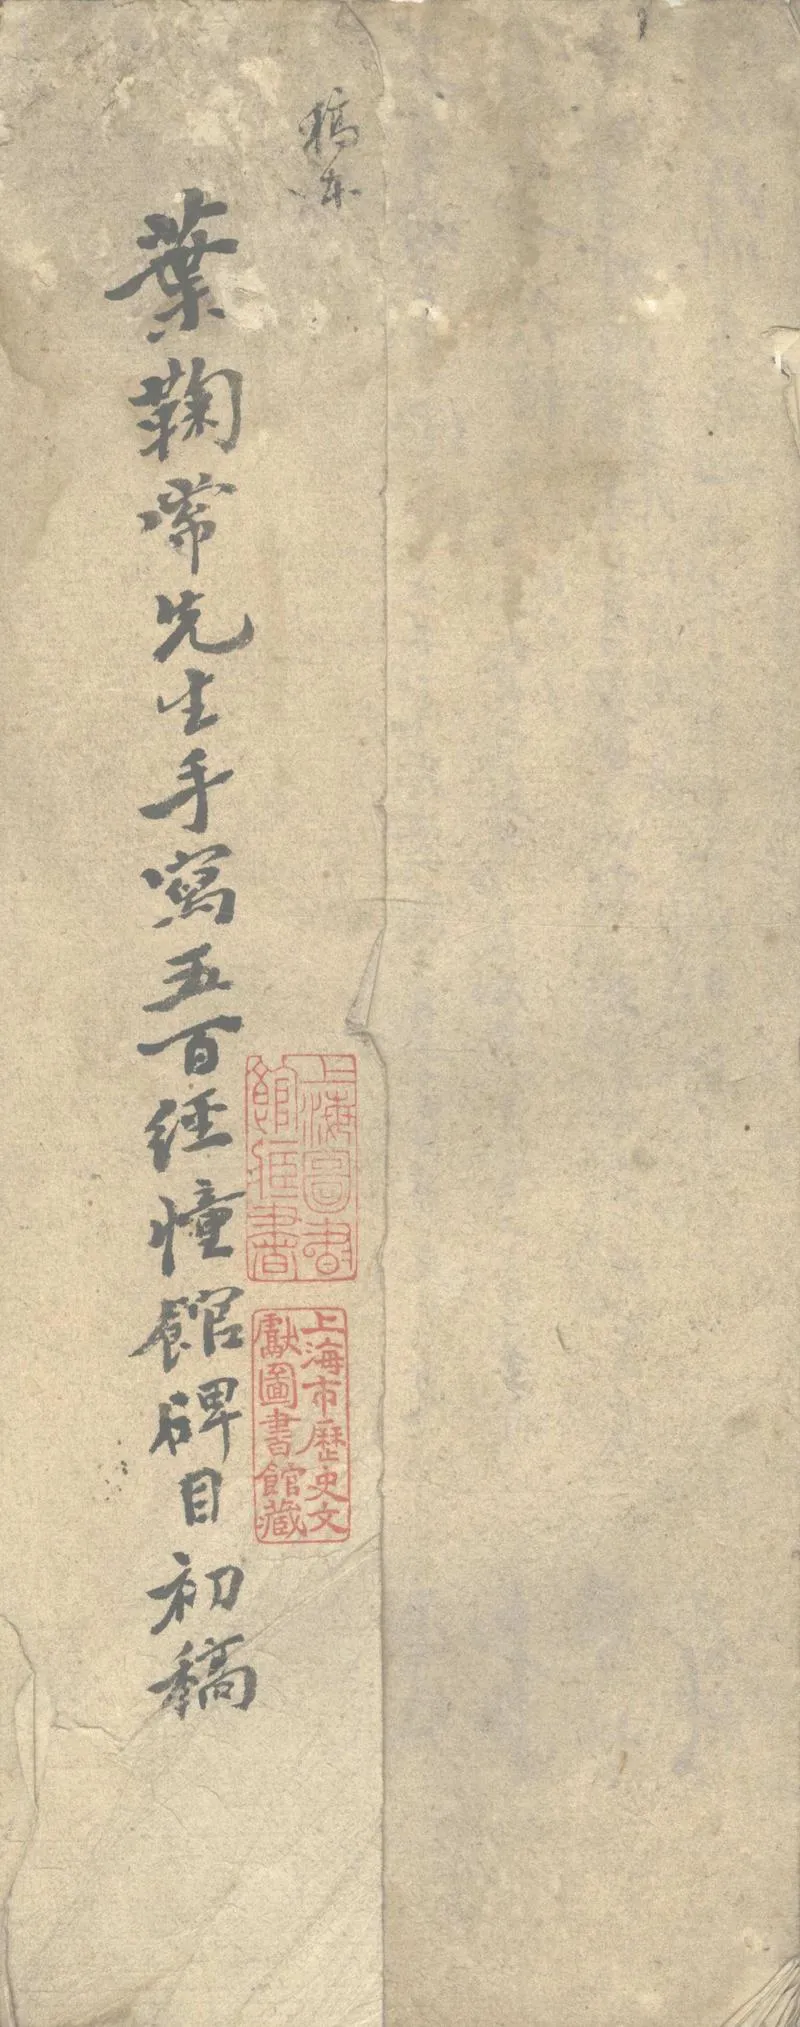 稿本
葉鞠常先生手寫五百經幢館碑目初稿
上海圖書
館藏書
上海市歷史文
獻圖書館藏